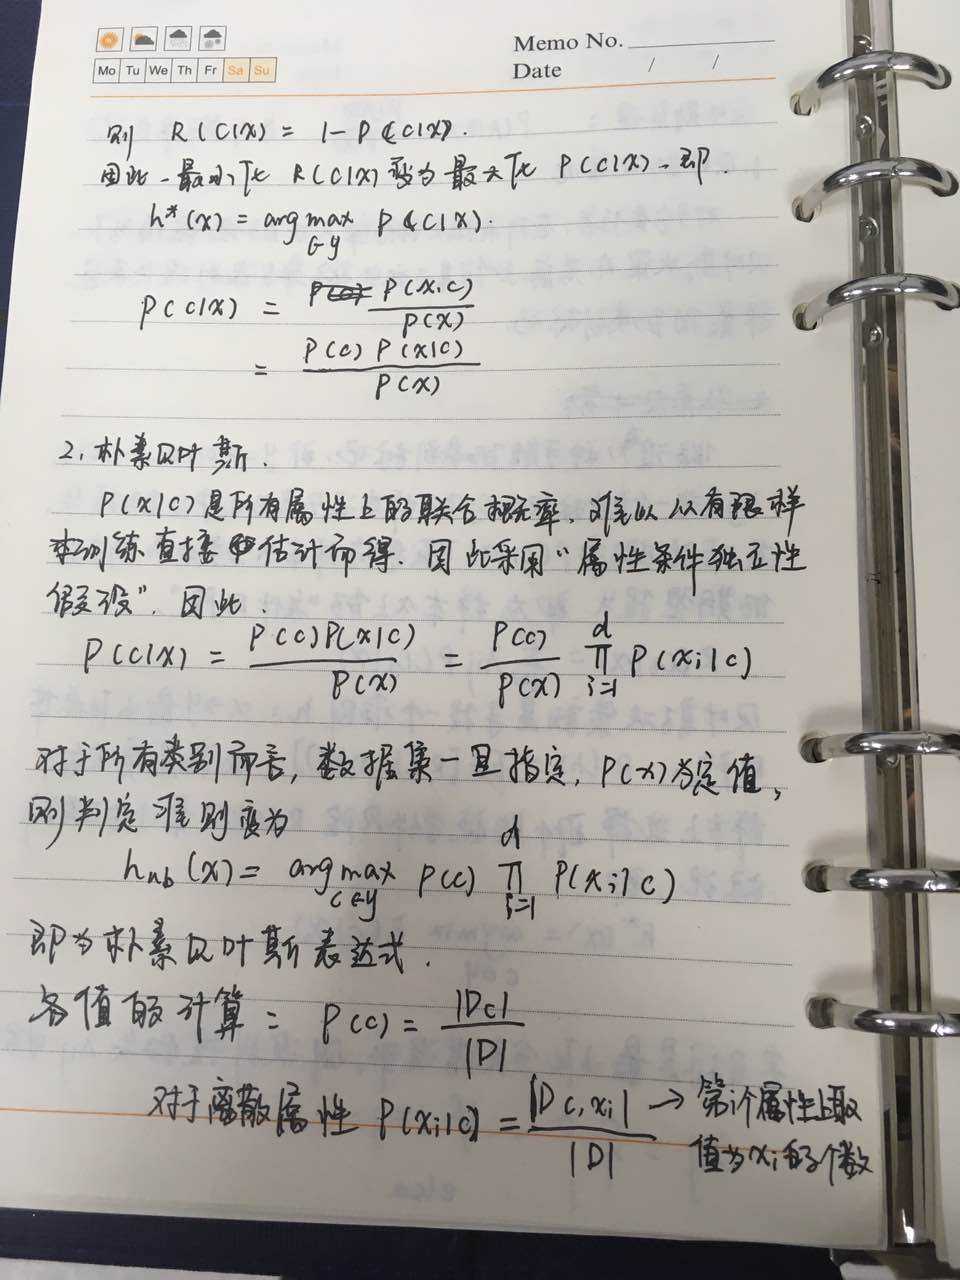 Memo No.
Mo Tu We Th Fr Sa Su
Date / /
则 R(c|x) = 1 - P(c|x).
因此, 最小化 R(c|x) 变为 最大化 P(c|x), 即
h*(x) = arg max P(c|x).
∈y
P(c|x) = P(x,c)
P(x)
= P(c) P(x|c)
P(x)
2. 朴素贝叶斯.
P(x|c)是所有属性上的联合概率, 难以从有限样
本训练直接估计而得. 因此采用“属性条件独立性
假设”. 因此:
P(c|x) = P(c)P(x|c) / P(x) = P(c) / P(x) ∏ᵈᵢ₌₁ P(xᵢ|c)
对于所有类别而言, 数据集一旦指定, P(x)为定值,
则判定准则变为
hnb(x) = arg max P(c) ∏ᵈᵢ₌₁ P(xᵢ|c)
c∈y
即为朴素贝叶斯表达式.
各值的计算: P(c) = |Dc| / |D|
对于离散属性 P(xᵢ|c) = |Dc,xᵢ| / |D| → 第i个属性上取
值为xᵢ的个数